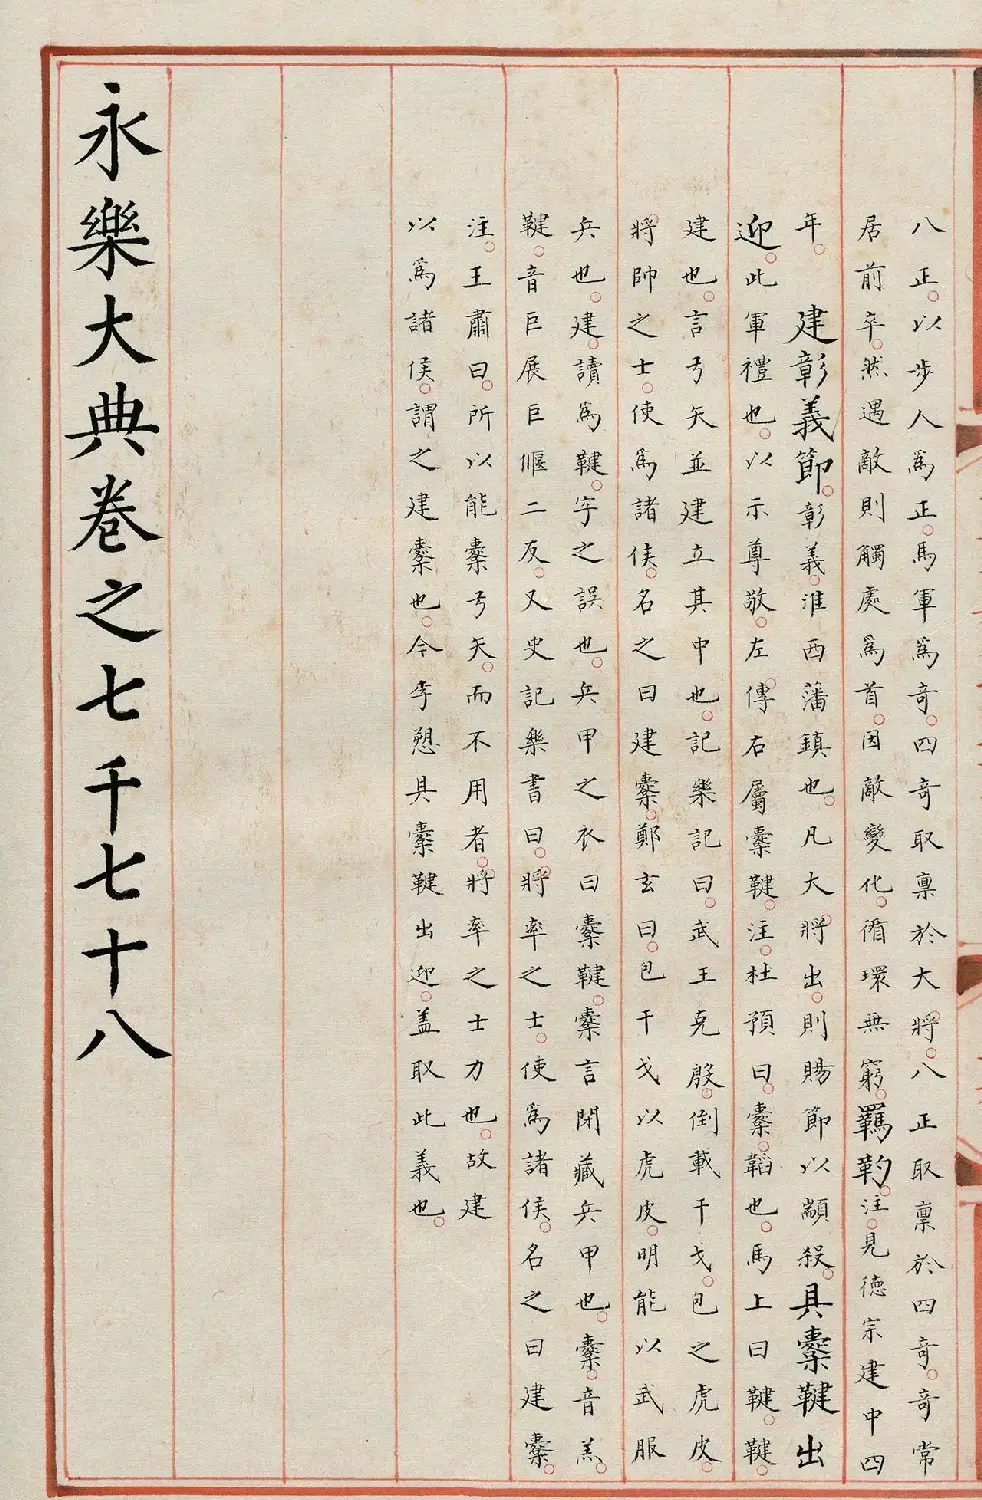 八正。以步人爲正。馬軍爲奇。四奇取禀於大將。八正取稟於四奇。奇常
居前卒。然遇敵則觸處爲首。因敵變化。循環無窮。羈靮。注。見德宗建中四
年。 建彰義節。彰義。淮西藩鎮也。凡大將出。則賜節以顓殺。具櫜鞬出
迎。此軍禮也。以示尊敬。左傳右屬櫜鞬。注。杜預曰。櫜。韜也。馬上曰鞬。鞬。
建也。言弓矢並建立其中也。記樂記曰。武王克殷。倒載干戈。包之虎皮。
將帥之士。使爲諸侯。名之曰建櫜。鄭玄曰。包干戈以虎皮。明能以武服
兵也。建。讀爲鞬。字之誤也。兵甲之衣曰櫜鞬。櫜言閉藏兵甲也。櫜。音羔。
鞬。音巨展巨偃二反。又史記樂書曰。將率之士。使爲諸侯。名之曰建櫜。
注。王肅曰。所以能櫜弓矢。而不用者。將率之士力也。故建
以爲諸侯。謂之建櫜也。今李愬具櫜鞬出迎。盖取此義也。
永樂大典卷之七千七十八